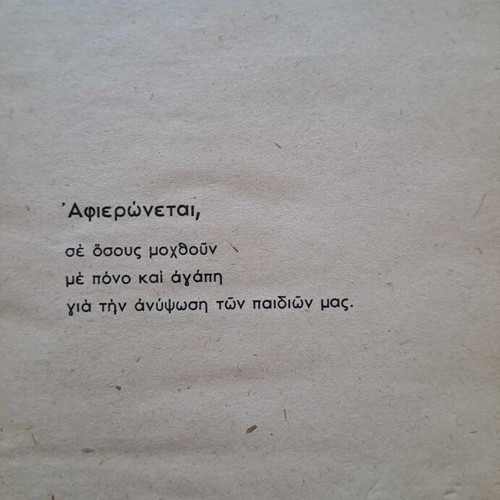 Ἀφιερώνεται,
σὲ ὅσους μοχθοῦν
μὲ πόνο καὶ ἀγάπη
γιὰ τὴν ἀνύψωση τῶν παιδιῶν μας.